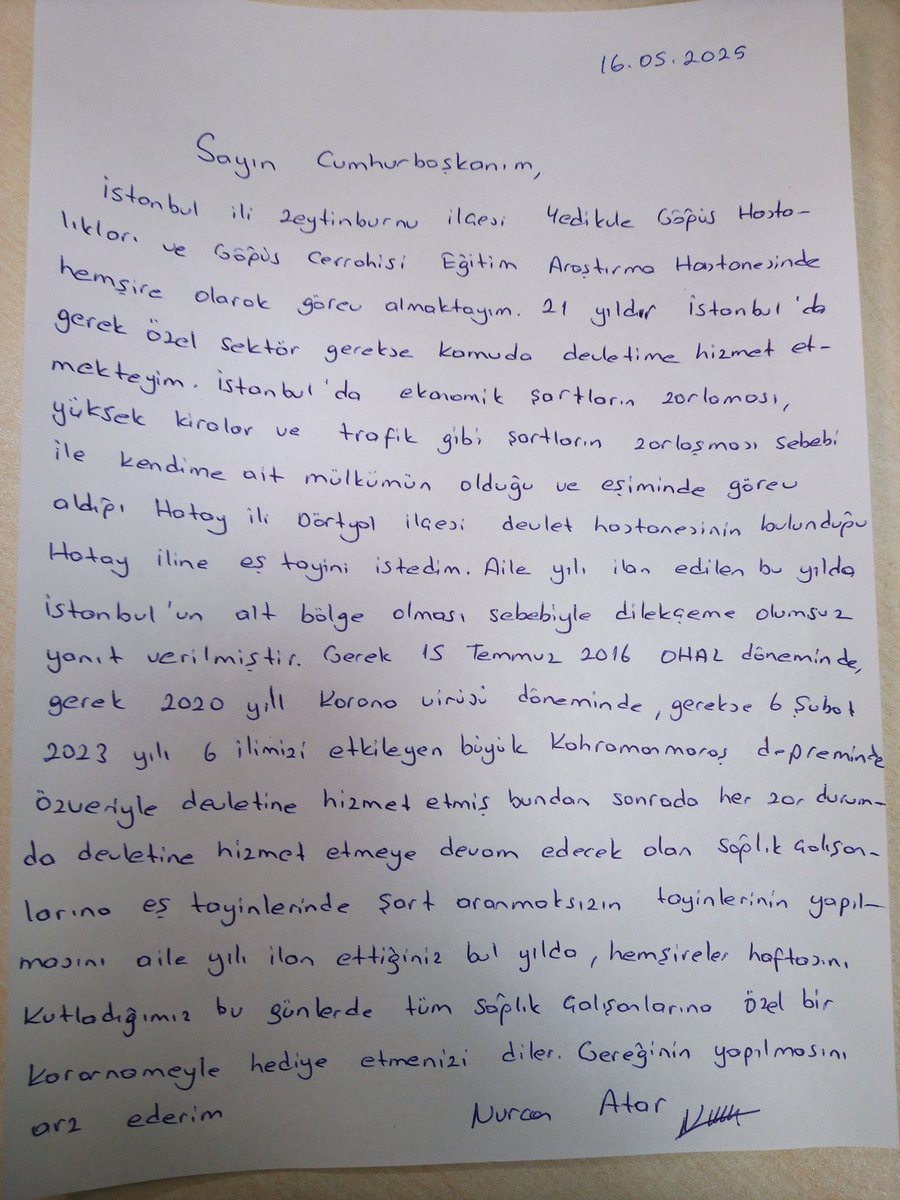 16.05.2025
Sayın Cumhurbaşkanım,
İstanbul ili Zeytinburnu ilçesi Yedikule Göğüs Hasta-
lıkları ve Göğüs Cerrahisi Eğitim Araştırma Hastanesinde
hemşire olarak görev almaktayım. 21 yıldır İstanbul'da
gerek özel sektör gerekse kamuda devletime hizmet et-
mekteyim. İstanbul'da ekonomik şartların zorlaması,
yüksek kiralar ve trafik gibi şartların zorlaşması sebebi
ile kendime ait mülkümün olduğu ve eşiminde görev
aldığı Hatay ili Dörtyol ilçesi devlet hastanesinin bulunduğu
Hatay iline eş tayini istedim. Aile yılı ilan edilen bu yılda
İstanbul'un alt bölge olması sebebiyle dilekçeme olumsuz
yanıt verilmiştir. Gerek 15 Temmuz 2016 OHAL döneminde,
gerek 2020 yılı Korona virüsü döneminde, gerekse 6 Şubat
2023 yılı 6 ilimizi etkileyen büyük Kahramanmaraş depreminde
özveriyle devletine hizmet etmiş bundan sonrada her zor durum-
da devletine hizmet etmeye devam edecek olan sağlık çalışan-
larına eş tayinlerinde şart aranmaksızın tayinlerinin yapıl-
masını aile yılı ilan ettiğiniz bul yılda, hemşireler haftasını
kutladığımız bu günlerde tüm sağlık çalışanlarına özel bir
kararnameyle hediye etmenizi diler. Gereğinin yapılmasını
arz ederim
Nurcan Atar